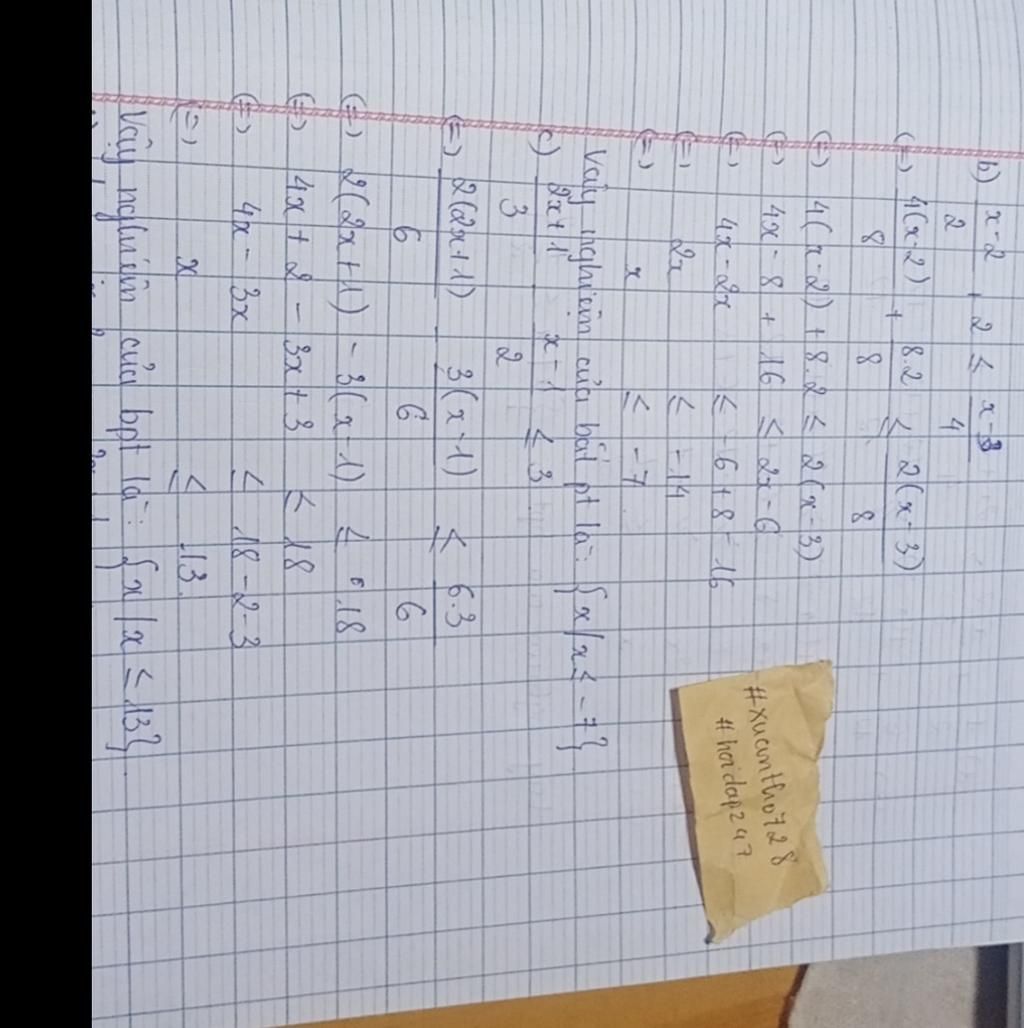 b) x-2/2 + 2 ≤ x-3/4
(=) 4(x-2)/8 + 8.2/8 ≤ 2(x-3)/8
(=) 4(x-2) + 8.2 ≤ 2(x-3)
(=) 4x - 8 + 16 ≤ 2x - 6
(=) 4x - 2x ≤ -6 + 8 - 16
(=) 2x ≤ -14
(=) x ≤ -7
Vậy nghiệm của bất pt là: {x/x ≤ -7}
c) 2x+1/3 - x-1/2 ≤ 3
(=) 2(2x+1)/6 - 3(x-1)/6 ≤ 6.3/6
(=) 2(2x+1) - 3(x-1) ≤ 18
(=) 4x + 2 - 3x + 3 ≤ 18
(=) 4x - 3x ≤ 18 - 2 - 3
(=) x ≤ 13
Vậy nghiệm của bpt là: {x/x ≤ 13}
#xuantho728
#hoidap247